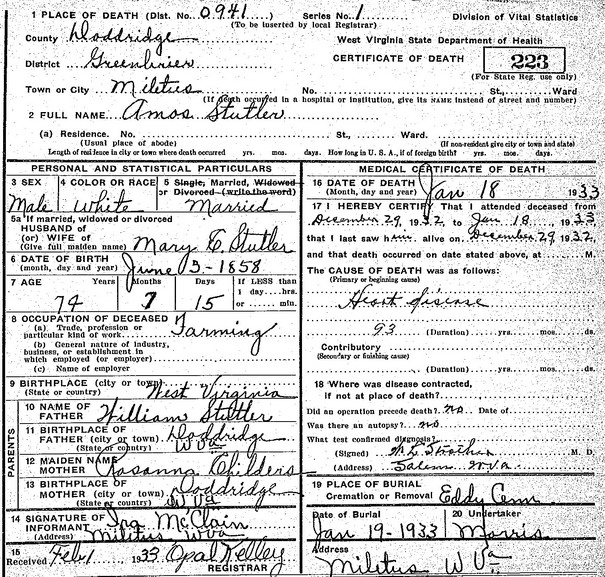 1 PLACE OF DEATH (Dist. No. 0941) Series No. 1 Division of Vital Statistics
(To be inserted by local Registrar)
County Doddridge West Virginia State Department of Health
District Greenbrier CERTIFICATE OF DEATH 223
(For State Reg. use only)
Town or City Miletus No. St., Ward
(If death occurred in a hospital or institution, give its NAME instead of street and number)
2 FULL NAME Amos Stutler
(a) Residence. No. St., Ward.
(Usual place of abode) (If non-resident give city or town and state)
Length of residence in city or town where death occurred yrs. mos. days. How long in U. S. A., if of foreign birth? yrs. mos. days.
PERSONAL AND STATISTICAL PARTICULARS
3 SEX 4 COLOR OR RACE 5 Single, Married, Widowed or Divorced (write the word)
Male White Married
5a If married, widowed or divorced
HUSBAND of
(or) WIFE of
(Give full maiden name) Mary E. Stutler
6 DATE OF BIRTH
(month, day and year) June 3-1858
7 AGE Years Months Days If LESS than
1 day....hrs.
or.... min.
74 7 15
8 OCCUPATION OF DECEASED Farming
(a) Trade, profession or
particular kind of work
(b) General nature of industry,
business, or establishment in
which employed (or employer)
(c) Name of employer
9 BIRTHPLACE (city or town)
(State or country) West Virginia
PARENTS
10 NAME OF
FATHER William Stutler
11 BIRTHPLACE OF
FATHER (city or town) Doddridge
(State or country) W Va
12 MAIDEN NAME
MOTHER Rosanna Childers
13 BIRTHPLACE OF
MOTHER (city or town) Doddridge
(State or country) W Va
14 SIGNATURE OF
INFORMANT Ira McClain
(Address) Miletus W Va
15
Received Feb 1 1933 Opal Kelley
REGISTRAR
MEDICAL CERTIFICATE OF DEATH
16 DATE OF DEATH
(Month, day and year) Jan 18 1933
17 I HEREBY CERTIFY That I attended deceased from
December 29, 1932, to Jan 18, 1933
that I last saw him alive on December 29 1932,
and that death occurred on date stated above, at M.
The CAUSE OF DEATH was as follows:
(Primary or beginning cause)
Heart disease
93 (Duration) yrs. mos. ds.
Contributory
(Secondary or finishing cause)
(Duration) yrs. mos. ds.
18 Where was disease contracted,
if not at place of death?
Did an operation precede death? no Date of
Was there an autopsy? no
What test confirmed diagnosis?
(Signed) Strother M. D.
(Address) Salem W Va.
19 PLACE OF BURIAL
Cremation or Removal Eddy Cem
Date of Burial 20 Undertaker
Jan 19-1933 Morris
Address
Miletus W Va